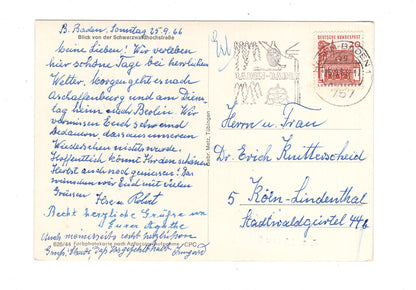 B. Baden, Sonntag 25.9.66
Blick von der Schwarzwaldhochstraße
Meine Lieben! Wir verleben
hier schöne Tage bei herrlichem
Wetter. Morgen geht es nach
Aschaffenburg und am Diens-
tag heim nach Berlin. Wir
vermissen Euch sehr und
bedauern, daß aus unserem
Wiedersehen nichts wurde.
Hoffentlich könnt Ihr den schönen
Herbst auch noch geniessen! Das
wünschen wir Euch mit vielen
Grüssen
Recht herzliche Grüße von
Eurer Agathe
Auch meinerseits recht herzlichen
Gruß, Irmgard
626/44 Farbphotokarte nach CPC
Gebr. Metz, Tübingen
BADEN-BADEN
757
DEUTSCHE BUNDESPOST
Herrn u. Frau
Dr. Erich Knitterscheid
5 Köln-Lindenthal
Stadtwaldgürtel 44b